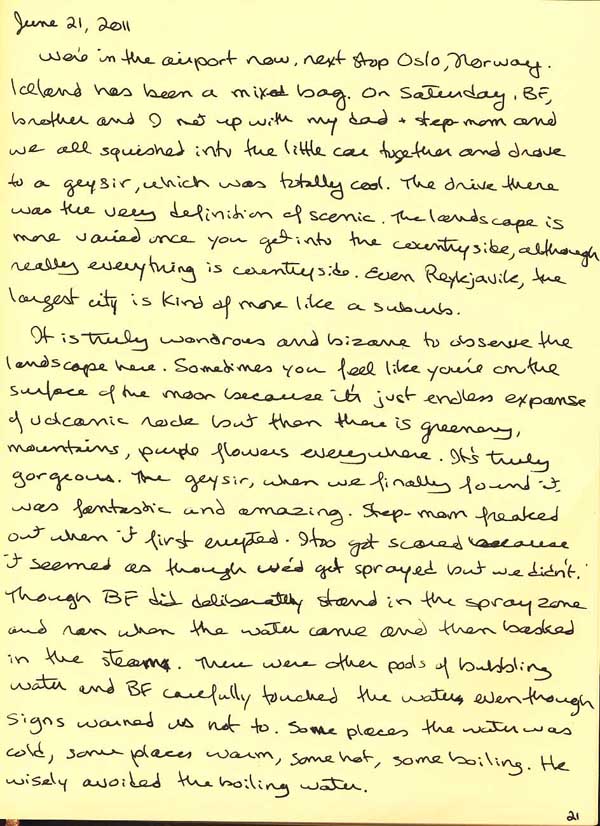 June 21, 2011
We're in the airport now, next stop Oslo, Norway.
Iceland has been a mixed bag. On Saturday, BF,
brother and I met up with my dad + step-mom and
we all squished into the little car together and drove
to a geysir, which was totally cool. The drive there
was the very definition of scenic. The landscape is
more varied once you get into the countryside, although
really everything is countryside. Even Reykjavik, the
largest city is kind of more like a suburb.
It is truly wondrous and bizarre to observe the
landscape here. Sometimes you feel like you're on the
surface of the moon because it's just endless expanse
of volcanic rock but then there is greenery,
mountains, purple flowers everywhere. It's truly
gorgeous. The geysir, when we finally found it,
was fantastic and amazing. Step-mom freaked
out when it first erupted. I too got scared because
it seemed as though we'd get sprayed but we didn't.
Though BF did deliberately stand in the spray zone
and ran when the water came and then basked
in the steam. There were other pools of bubbling
water and BF carefully touched the waters even though
signs warned us not to. Some places the water was
cold, some places warm, some hot, some boiling. He
wisely avoided the boiling water.
21